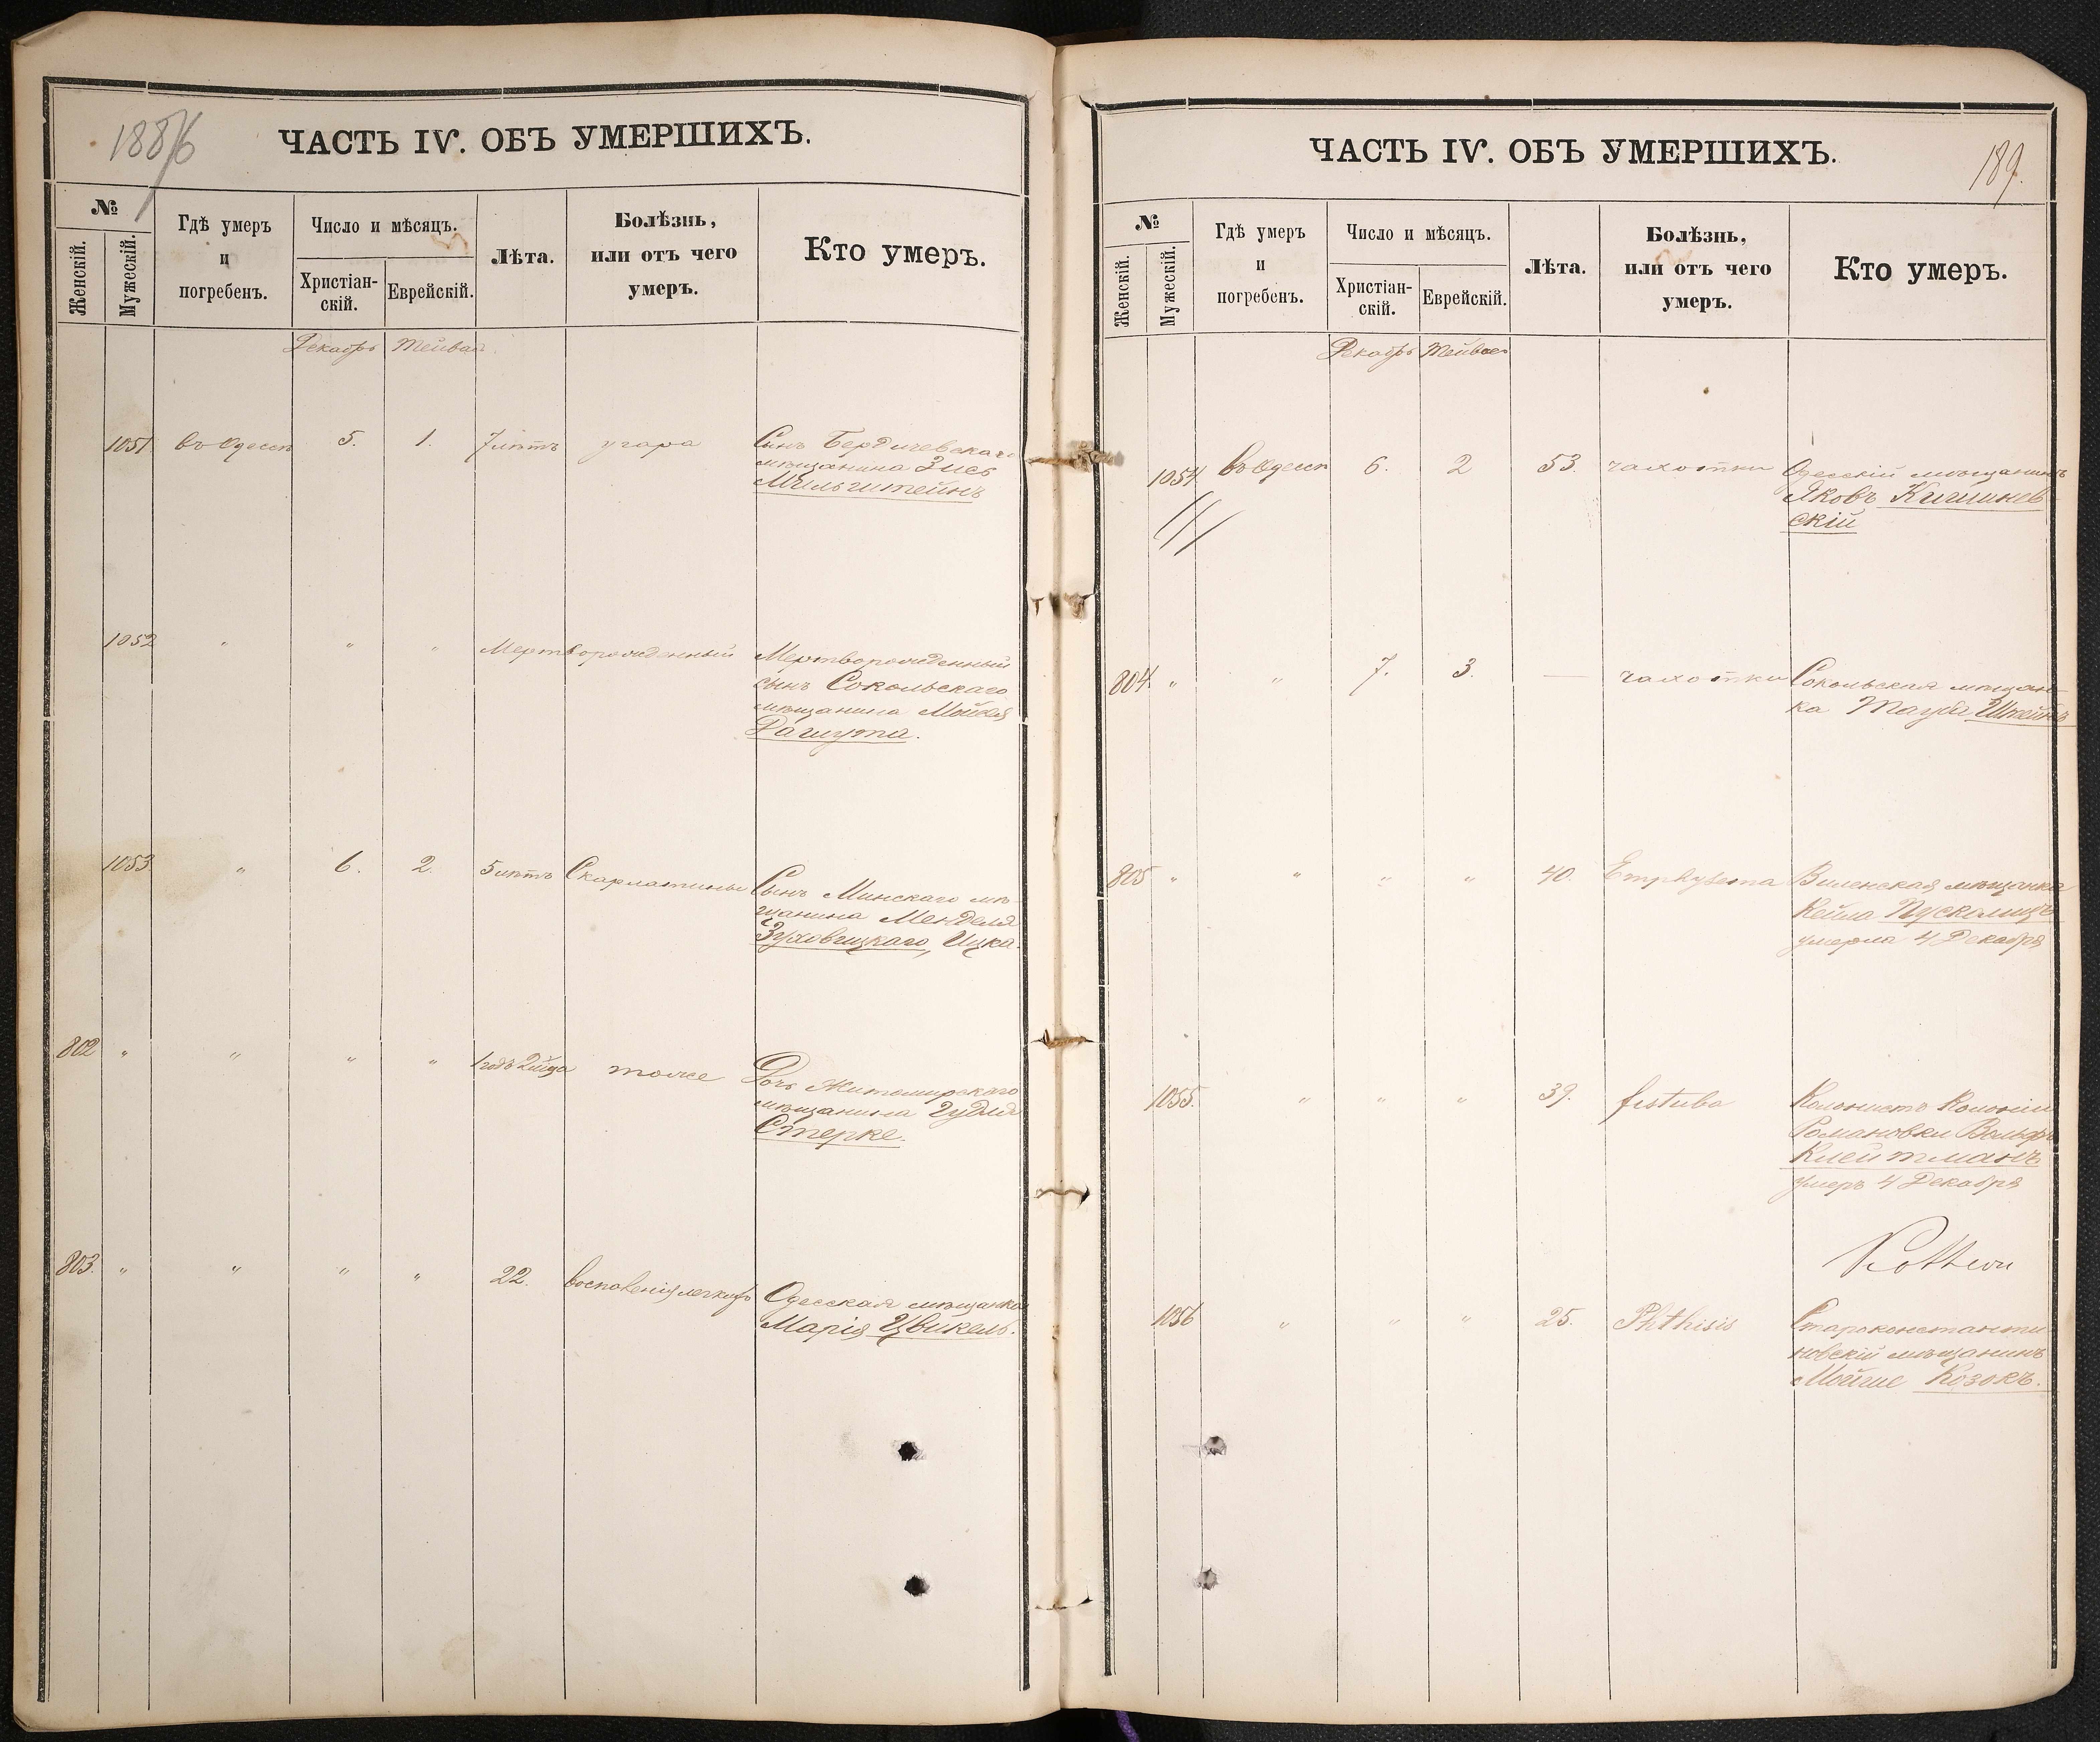 188/6
ЧАСТЬ IV. ОБЪ УМЕРШИХЪ.
№
Женскій.
Мужескій.
Гдѣ умеръ
и
погребенъ.
Число и мѣсяцъ.
Христіан-
скій.
Еврейскій.
Лѣта.
Болѣзнь,
или отъ чего
умеръ.
Кто умеръ.
Декабрь Тейвас
1051 въ Одессѣ 5. 1. 7 лѣтъ угара Сынъ Бердичевскаго
мѣщанина Зись
Мильштейнъ
1052 " " " Мертворожденный Мертворожденный
сынъ Сокольскаго
мѣщанина Мойсея
Рашута.
1053 " 6. 2. 5 лѣтъ Скарлатины Сынъ Минскаго мѣ-
щанина Менделя
Зуховицкаго, Ицка.
802 " " " " 1 годъ 2 мѣсяца тоже Дочь Житомирскаго
мѣщанина Гудля
Стерке.
803. " " " " 22. воспаленія легкихъ Одесская мѣщанка
Марія Цвикель.
ЧАСТЬ IV. ОБЪ УМЕРШИХЪ.
189.
№
Женскій.
Мужескій.
Гдѣ умеръ
и
погребенъ.
Число и мѣсяцъ.
Христіан-
скій.
Еврейскій.
Лѣта.
Болѣзнь,
или отъ чего
умеръ.
Кто умеръ.
Декабрь Тейвес
1054. въ Одессѣ 6. 2 53. чахотки Одесскій мѣщанинъ
Яковъ Кишинев-
скій
804 " " 7. 3. — чахотки Сокольская мѣщан-
ка Тауба Штейнъ
805 " " " " 40. Emphysema Виленская мѣщанка
Кейла
умерла 4 Декабря
1055. " " " 39. fistula Колонистъ Колоніи
Романовки Вольфъ
Клейтманъ
умеръ 4 Декабря
1056 " " " 25. Phthisis Староконстанти
новскій мѣщанинъ
Мойше Козокъ.